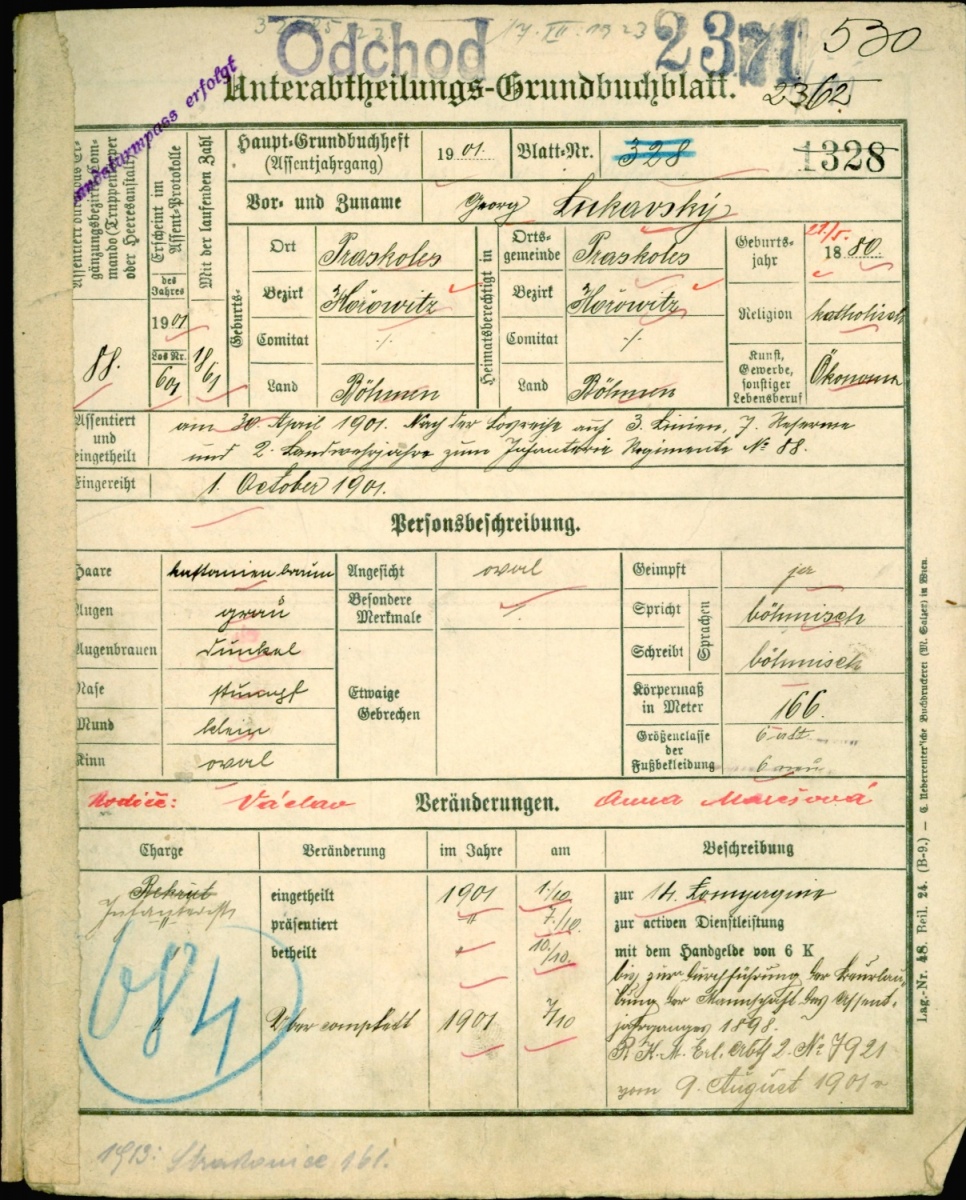 17. XII. 1923
Odchod
2371
530
Landsturmpass erfolgt
Unterabtheilungs-Grundbuchblatt.
2362
Haupt-Grundbuchheft
(Assentjahrgang)
1901
Blatt-Nr.
328
1328
Vor- und Zuname
Georg Lukavský
Assentiert durch das Er-
gänzungsbezirks-Com-
mando (Truppenkörper
oder Heeresanstalt)
88.
Erscheint im
Assent-Protokolle
des
Jahres
1901
Los Nr.
601
Mit der laufenden Zahl
18/61
Geburts-
Ort
Praskoles
Bezirk
Hořowitz
Comitat
·/.
Land
Böhmen
Heimatsberechtigt in
Orts-
gemeinde
Praskoles
Bezirk
Hořowitz
Comitat
·/.
Land
Böhmen
Geburts-
jahr
21/5.
1880
Religion
katholisch
Kunst,
Gewerbe,
sonstiger
Lebensberuf
Ökonom
Assentiert
und
eingetheilt
am 30 April 1901. Nach der Losreihe auf 3. Linien, 7. Reserve
und 2. Landwehrjahre zum Infanterie Regimente No 88.
Eingereiht
1. October 1901.
Personsbeschreibung.
Haare
kastanienbraun
Augen
grau
Augenbrauen
dunkel
Nase
stumpf
Mund
klein
Kinn
oval
Angesicht
oval
Besondere
Merkmale
·/.
Etwaige
Gebrechen
Geimpft
ja
Spricht
Sprachen
böhmisch
Schreibt
böhmisch
Körpermaß
in Meter
166.
Größenclasse
der
Fußbekleidung
6 alt
6 neu
Rodiče: Václav
Veränderungen.
Anna Marešová
Charge
Veränderung
im Jahre
am
Beschreibung
Rekrut
Infanterist
eingetheilt
1901
1./10
zur 14. Compagnie
präsentiert
"
7./10.
zur activen Dienstleistung
betheilt
"
10./10.
mit dem Handgelde von 6 K
"
Über complett
1901
7/10
bis zur Durchführung der Beurlau-
bung der Mannschaft des Assent-
jahrganges 1898.
R. K. M. Erl. Abth 2. No 7921
vom 9. August 1901
684
1913: Strakonice 161.
Lag.-Nr. 48. Beil. 24. (B-9.) — C. Ueberreuter'sche Buchdruckerei (M. Salzer) in Wien.